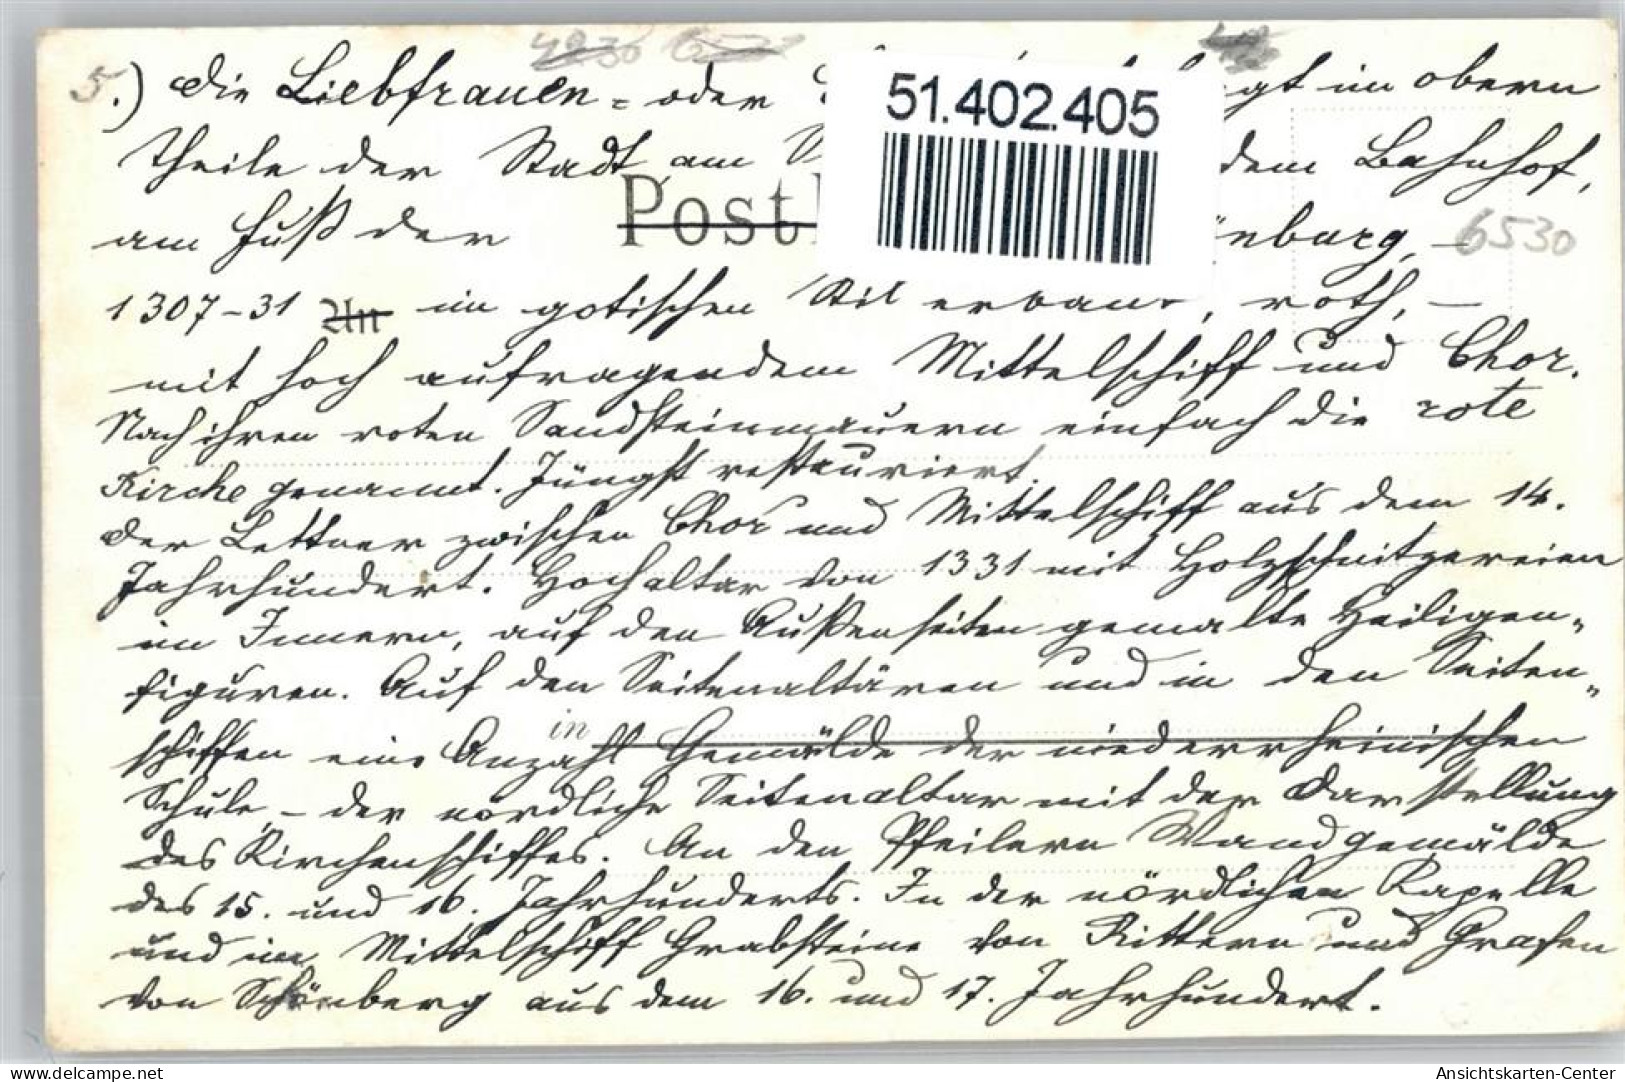 4230
5.) Die Liebfrauen- oder
51.402.405
gt im obern
Theile der Stadt am
dem Bahnhof,
Post
am Fuß der
nburg, –
6530
1307-31 An im gotischen Stil erbaut, roth, –
mit hoch aufragendem Mittelschiff und Chor.
Nach ihren roten Sandsteinmauern einfach die rote
Kirche genannt. Jüngst restauriert.
Der Lettner zwischen Chor und Mittelschiff aus dem 14.
Jahrhundert. Hochaltar von 1331 mit Holzschnitzereien
im Innern, auf den Außenseiten gemalte Heiligen-
figuren. Auf den Seitenaltären und in den Seiten-
in
schiffen eine Anzahl Gemälde der niederrheinischen
Schule, – der nördliche Seitenaltar mit der Darstellung
des Kirchenschiffes. An den Pfeilern Wandgemälde
des 15. und 16. Jahrhunderts. In der nördlichen Kapelle
und im Mittelschiff Grabsteine von Rittern und Grafen
von Schönberg aus dem 16. und 17. Jahrhundert.
www.delcampe.net
Ansichtskarten-Center